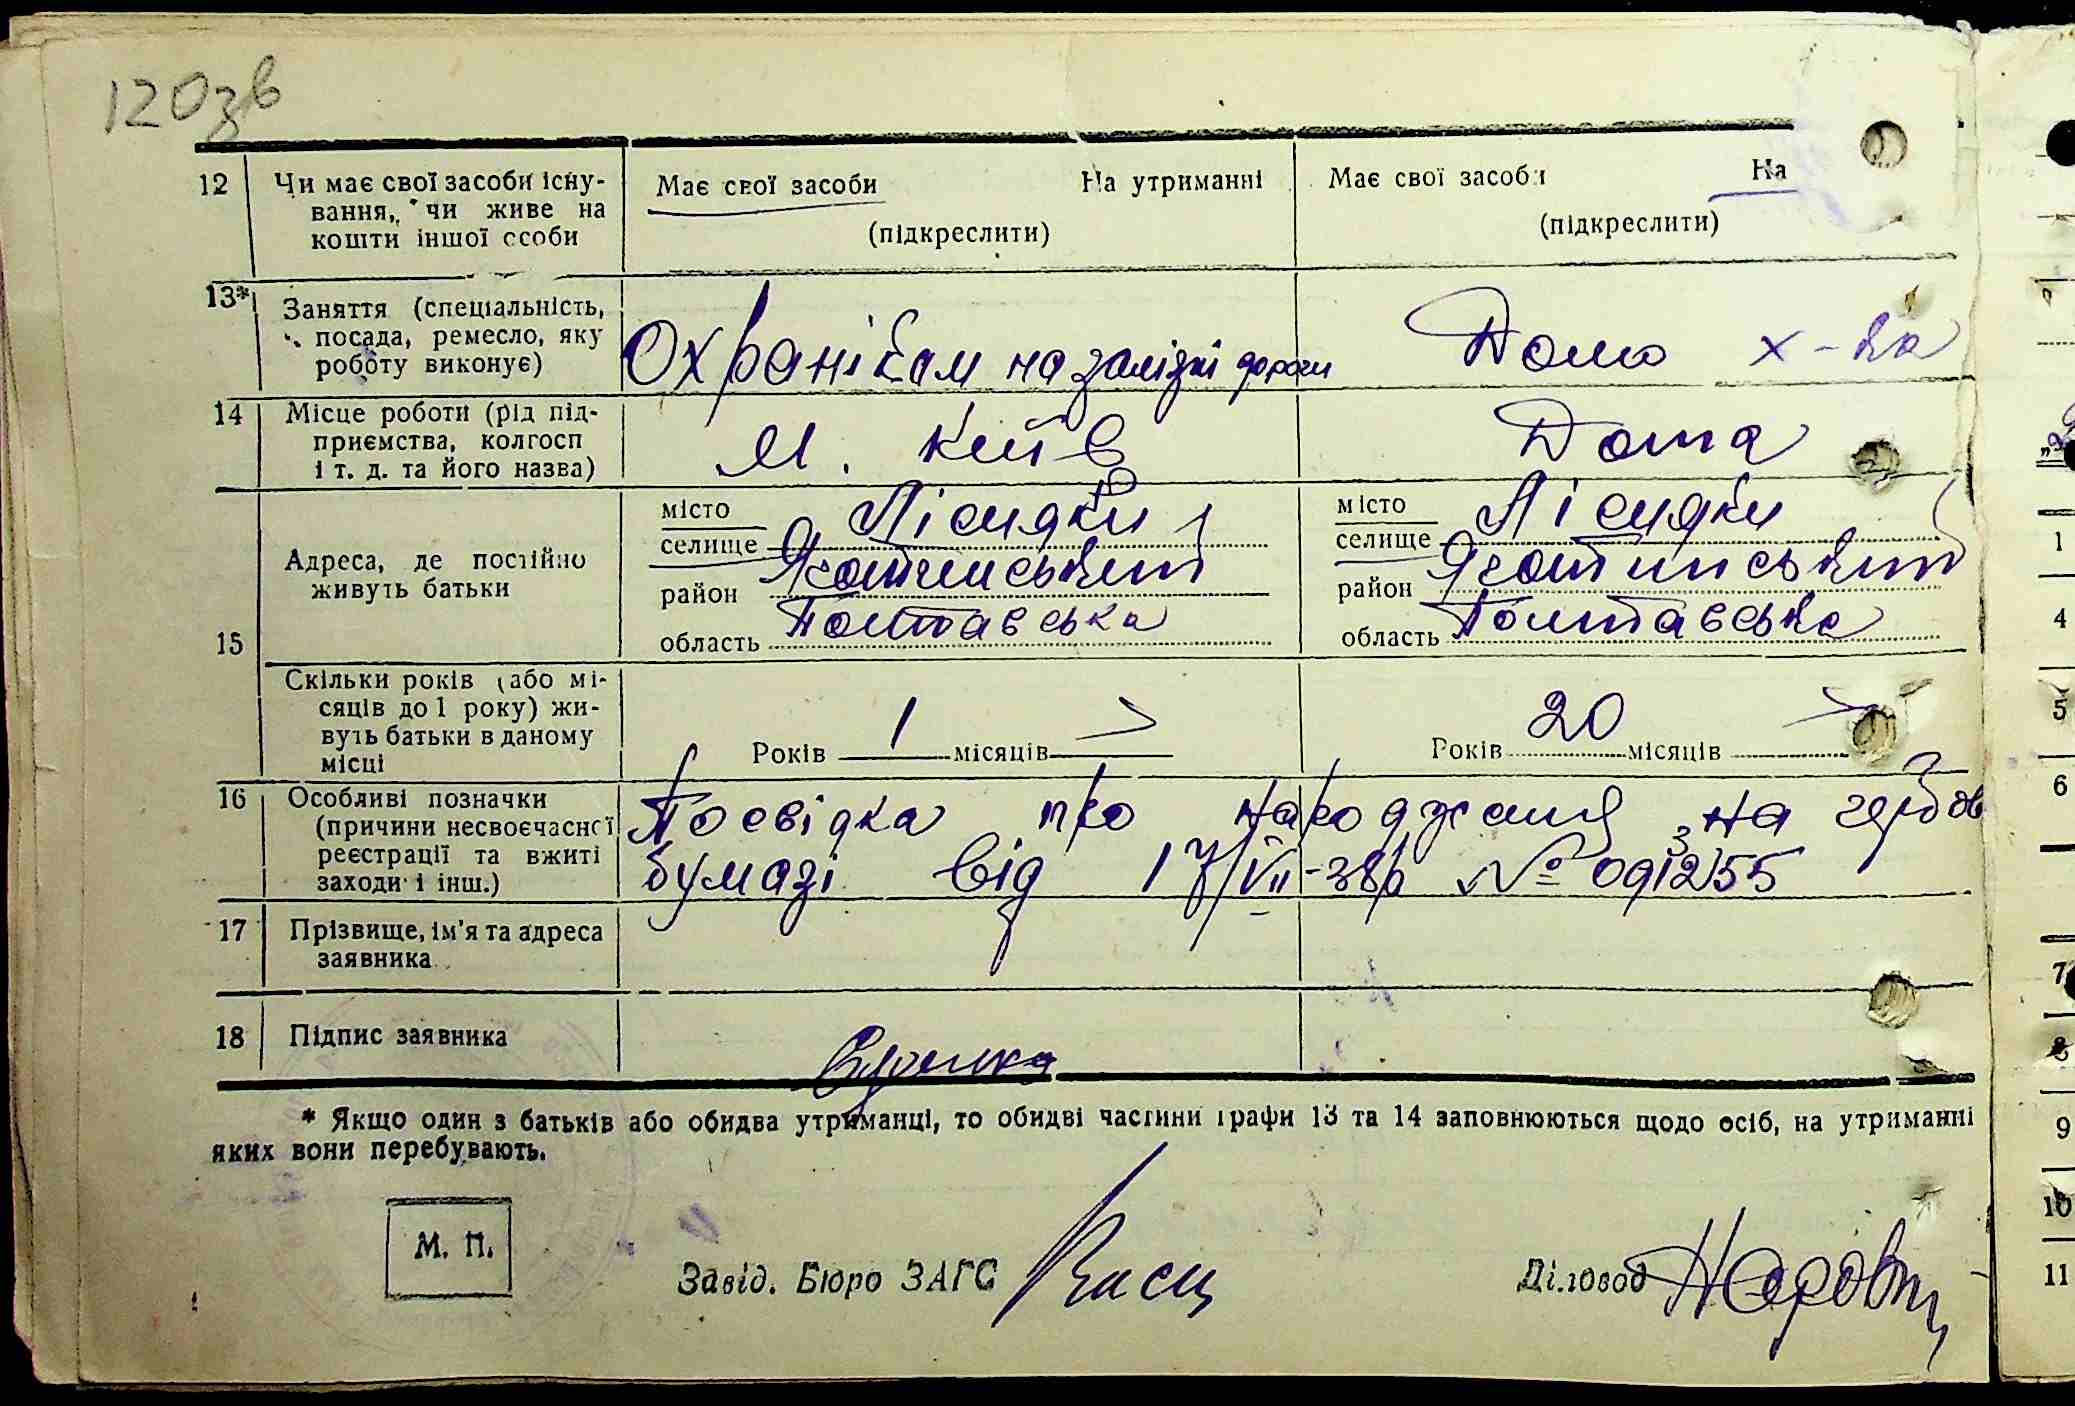 120зв
12 Чи має свої засоби існу- Має свої засоби На утриманні Має свої засоби На
вання, чи живе на
кошти іншої особи (підкреслити) (підкреслити)
13* Заняття (спеціальність,
посада, ремесло, яку
роботу виконує) Охранікам на залізні дороги Домо х-ка
14 Місце роботи (рід під-
приємства, колгосп
і т. д. та його назва) м. Київ Дома
15 Адреса, де постійно
живуть батьки
місто
селище Лісняки місто
селище Лісняки
район Яготинський район Яготинський
область Полтавська область Полтавська
Скільки років (або мі-
сяців до 1 року) жи-
вуть батьки в даному
місці
Років 1 місяців Років 20 місяців
16 Особливі позначки
(причини несвоєчасної
реєстрації та вжиті
заходи і інш.)
Посвідка про народження на гербов
бумазі від 17/VII-38р №
17 Прізвище, ім'я та адреса
заявника
18 Підпис заявника
* Якщо один з батьків або обидва утриманці, то обидві частини графи 13 та 14 заповнюються щодо осіб, на утриманні
яких вони перебувають.
М. П.
Завід. Бюро ЗАГС Діловод
1
4
5
6
7
8
9
10
11